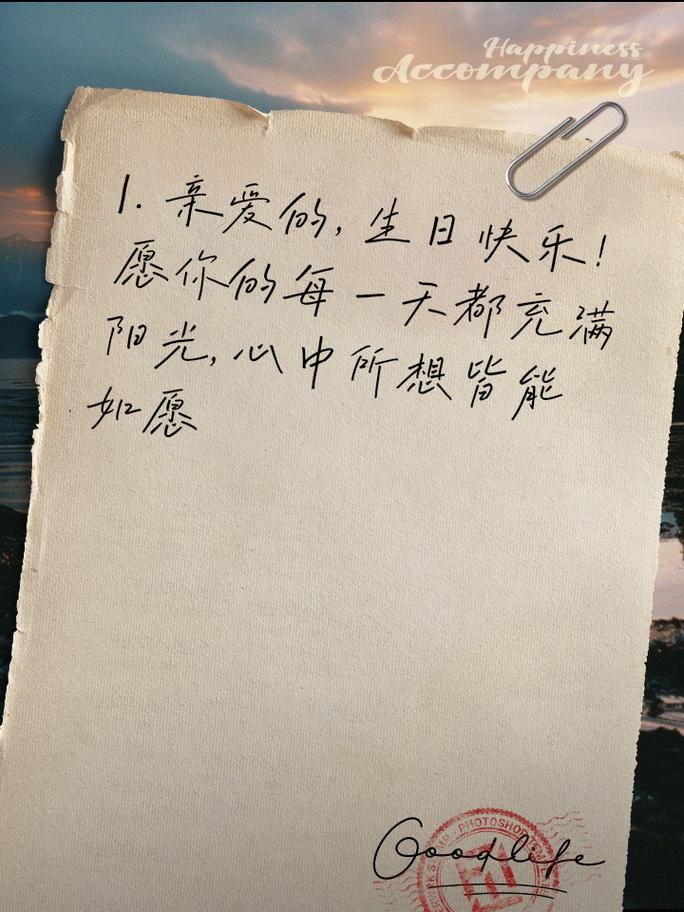 Happiness
Accompany
1. 亲爱的, 生日快乐!
愿你的每一天都充满
阳光, 心中所想皆能
如愿
PHOTOSHOP
Goodlife